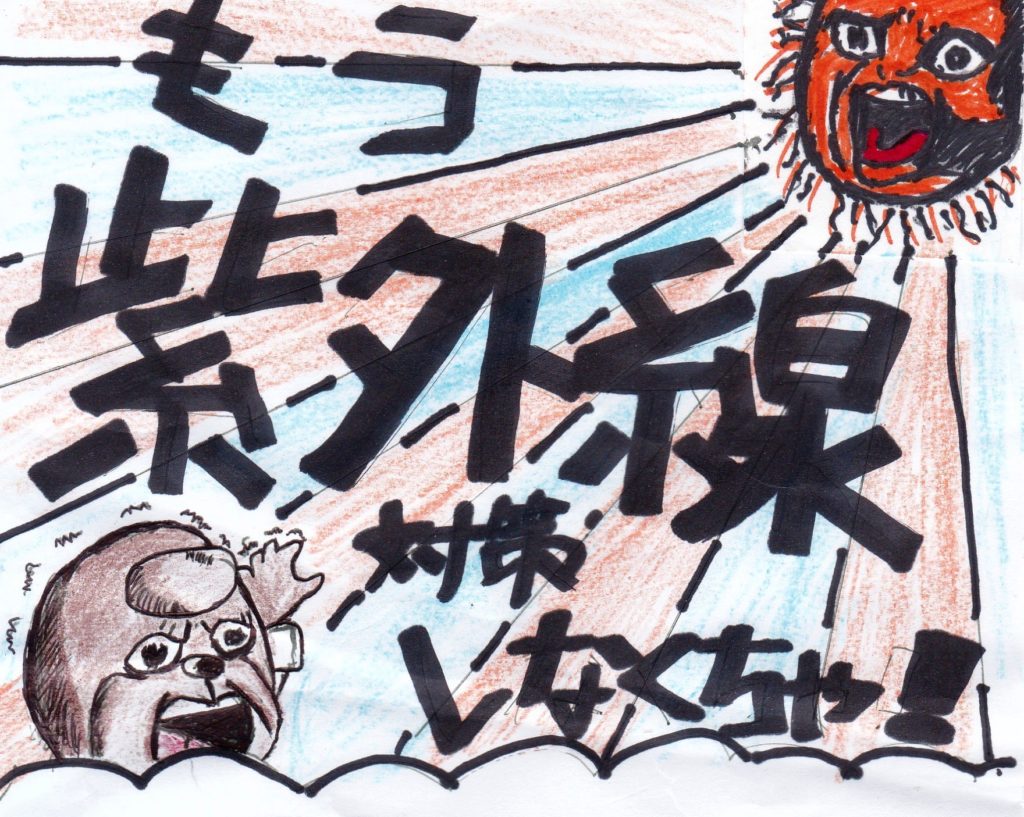 もう
紫外線
対策
しなくちゃ!!